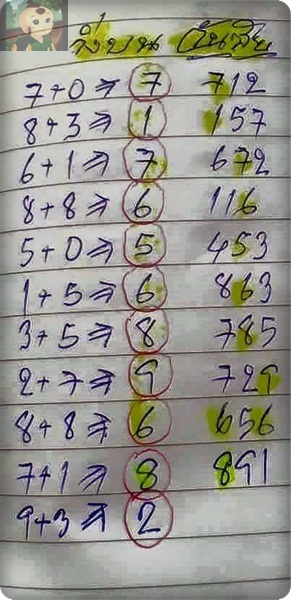 วิ่งบน วันเสีย
7+0 ⇒ 7 712
8+3 ⇒ 1 157
6+1 ⇒ 7 672
8+8 ⇒ 6 116
5+0 ⇒ 5 453
1+5 ⇒ 6 863
3+5 ⇒ 8 785
2+7 ⇒ 9 729
8+8 ⇒ 6 656
7+1 ⇒ 8 891
9+3 ⇒ 2